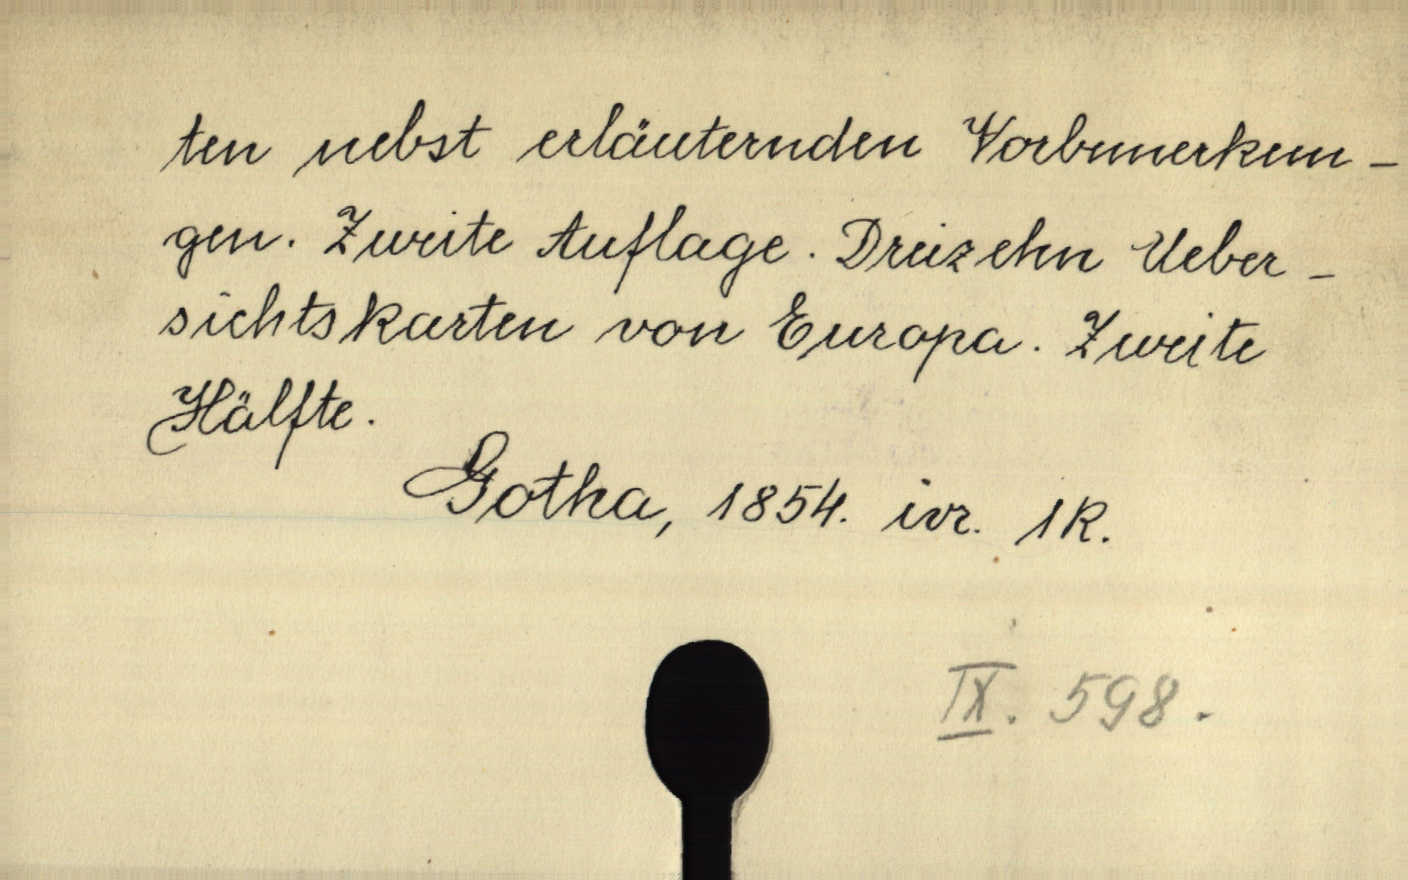 ten nebst erläuternden Vorbemerkun-
gen. Zweite Auflage. Dreizehn Ueber-
sichtskarten von Europa. Zweite
Hälfte.
Gotha, 1854. ivr. 1K.
IX. 598.